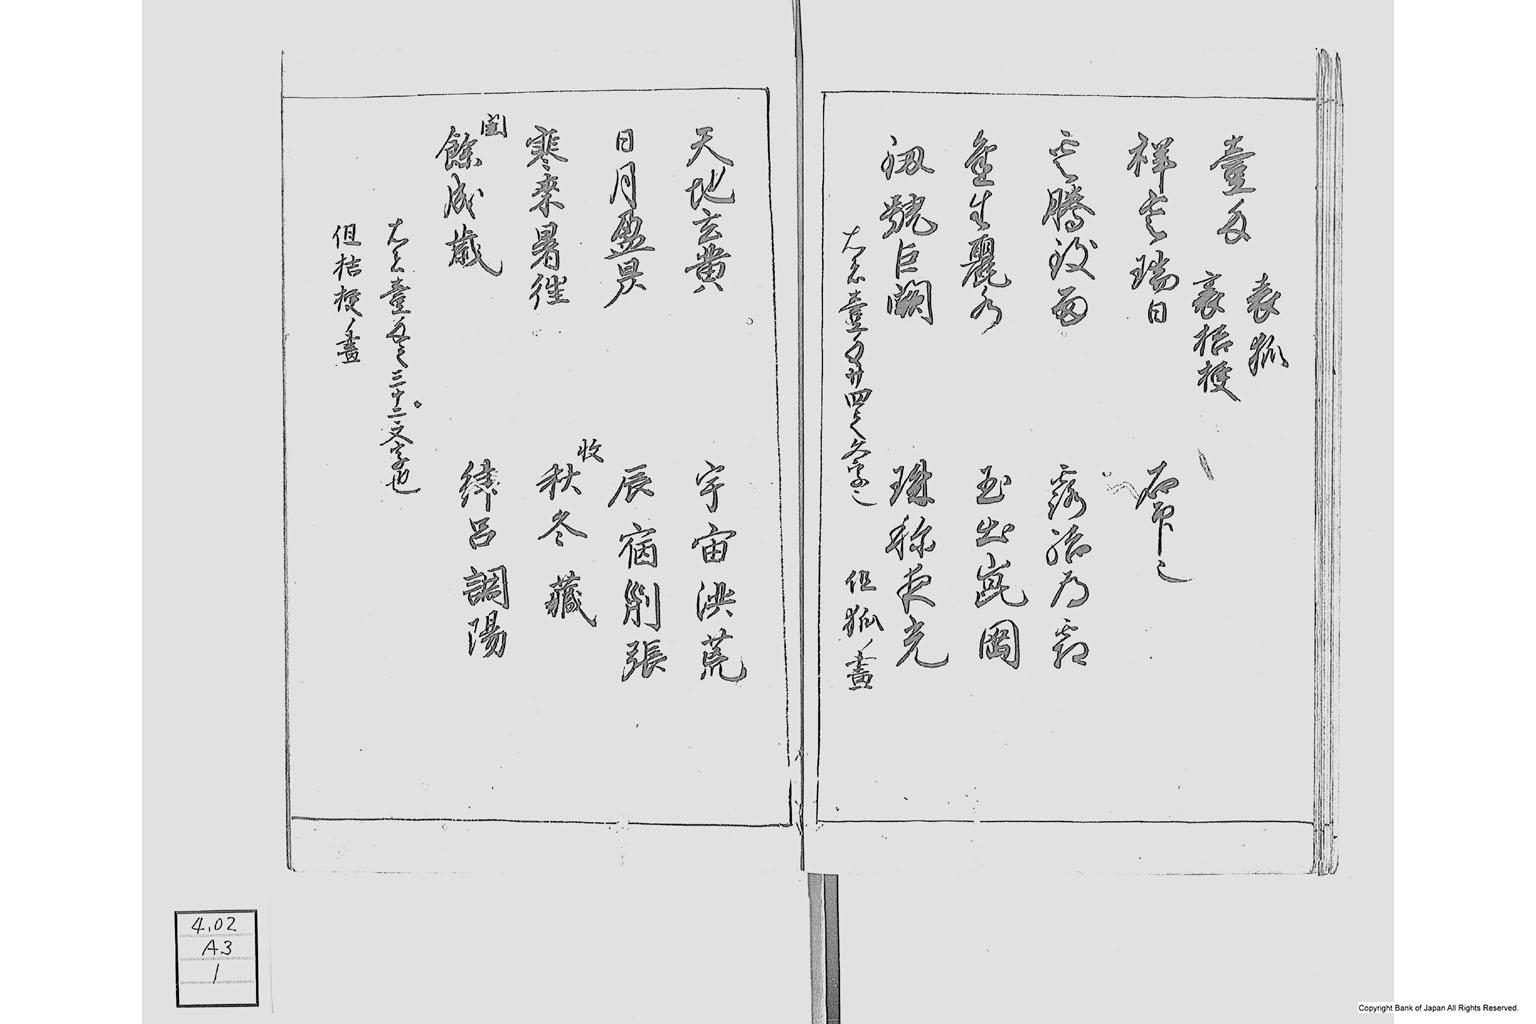 表狐
壹匁
裏桔梗
祥雲瑞日
雲騰致雨 露結為霜
金生麗水 玉出崑岡
釼號巨闕 珠称夜光
右者壹匁廿四之文字之 但狐ノ畫
天地玄黄 宇宙洪荒
日月盈昃 辰宿列張
寒来暑往 秋收冬藏
閏餘成歳 律呂調陽
右者壹匁之三十二文字也
但桔梗ノ畫
4.02
A3
1
Copyright Bank of Japan All Rights Reserved.